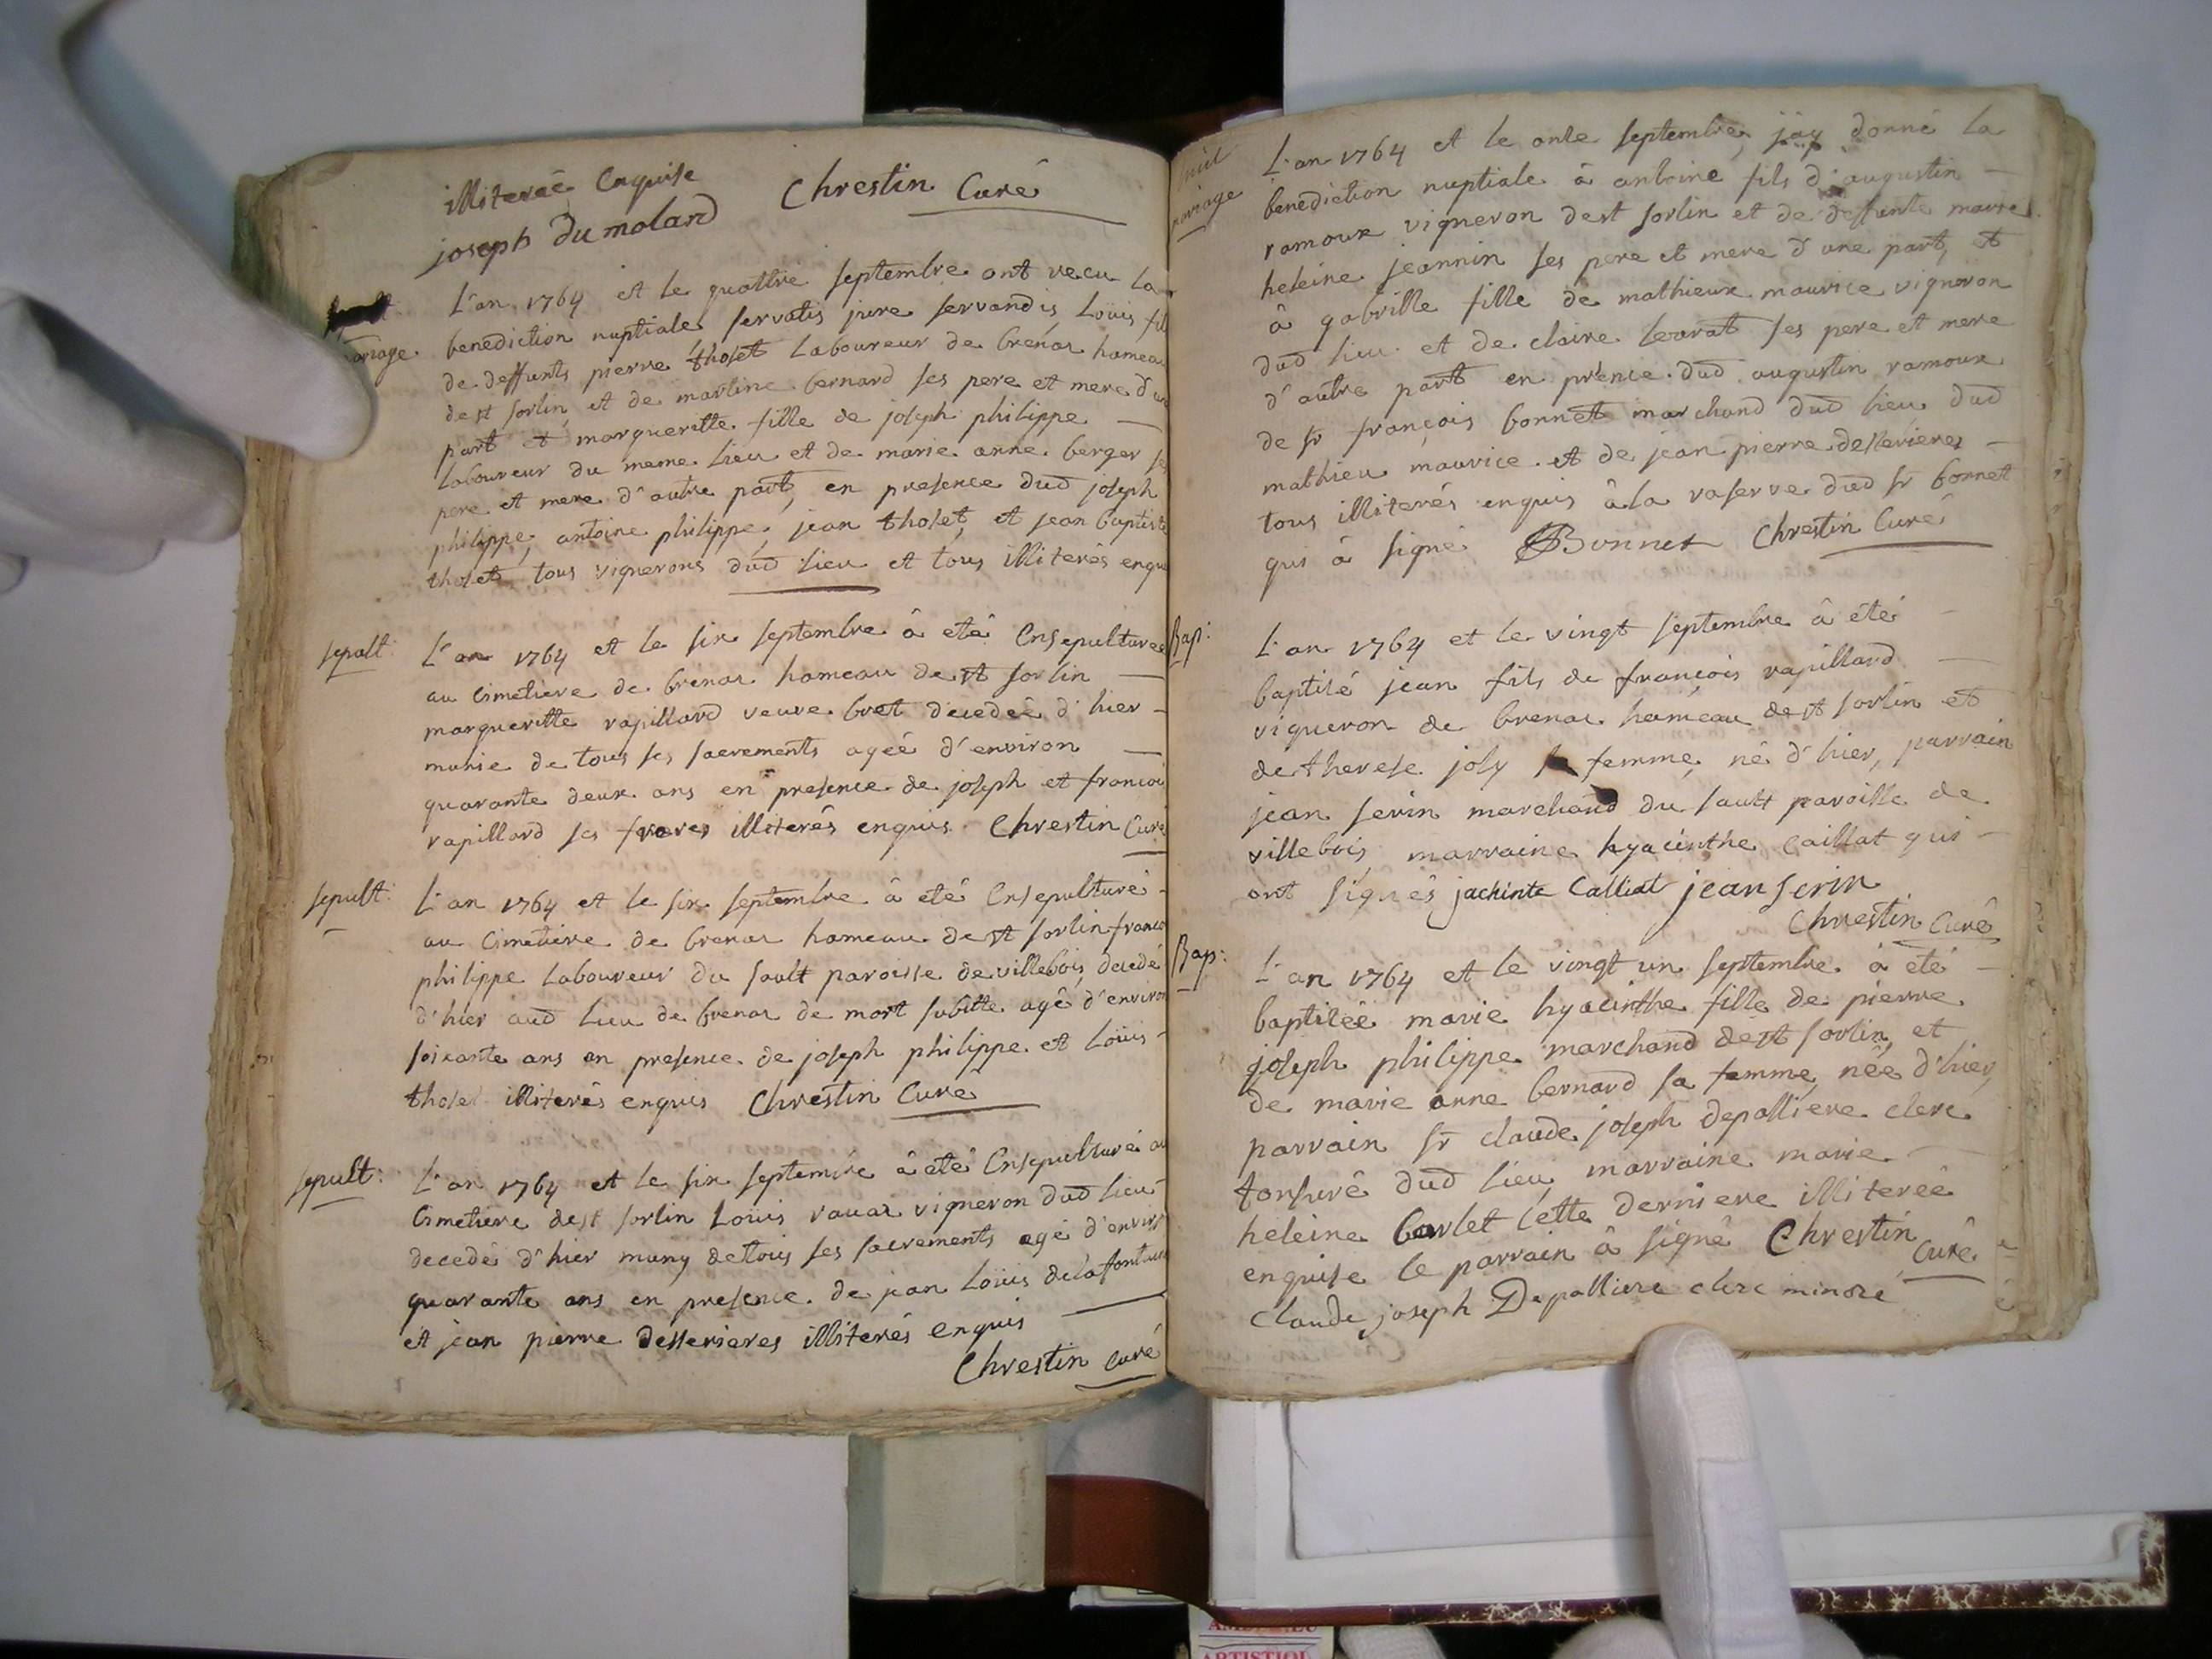 illiterée Enquise Chrestin Curé
joseph Dumoland
mariage. L'an 1764 et le quattre septembre ont recu la
benediction nuptiale servatis jure servandis, Loüis fil
de deffunts pierre tholet Laboureur de brénar hameau
de st sorlin, et de marline bernard ses pere et mere d'une
part et margueritte fille de joseph philippe
laboureur du meme lieu et de marie anne berger ses
pere et mere d'autre part, en presence dud joseph
philippe, antoine philippe, jean tholet, et jean baptiste
tholet, tous vignerons dud lieu et tous illiterés enqu
sepult: L'an 1764 et le six septembre â eté Ensepulturee
au Cimetiere de brenar hameau de st sorlin
margueritte rapillard veuve bret decedée d'hier
munie de tous ses sacrements agée d'environ
quarante deux ans en presence de joseph et francoi
rapillard ses freres illiterés enquis. Chrestin Curé
sepult: L'an 1764 et le six septembre â eté Ensepulturé
au Cimetiere de brenar hameau de st sorlin franco
philippe Laboureur du sault paroisse de villebois, decedé
d'hier aud lieu de brenar de mort subitte agé d'environ
soixante ans en presence de joseph philippe et Loüis
tholet illiterés enquis Chrestin Curé
sepult: L'an 1764 et le six septembre â eté Ensepulturé au
Cimetiere de st sorlin Loüis ravar vigneron dud lieu
decedé d'hier muny de tous ses sacrements agé d'environ
quarante ans en presence de jean Loüis delafontaine
et jean pierre desserieres illiterés enquis
Chrestin curé
mariage L'an 1764 et le onze septembre, j'ay donné la
benediction nuptiale â antoine fils d'augustin
ramoux vigneron de st sorlin et de deffunte marie
heleine jeannin ses pere et mere d'une part, et
â gabrille fille de mathieux maurice vigneron
dud lieu et de claire levrat ses pere et mere
d'autre part en pr'ence dud augustin ramoux
de sr françois bonnet marchand dud lieu dud
mathieu maurice et de jean pierre desserieres
tous illiterés enquis â la raserve dud sr bonnet
qui â signé Bonnet Chrestin Curé
Bap: L'an 1764 et le vingt septembre â été
baptisé jean fils de françois rapillard
vigneron de brenar hameau de st sorlin et
de therese joly sa femme, né d'hier, parrain
jean serin marchand du sault paroisse de
villebois, marraine hyacinthe caillat qui
ont signés jachinte Calliat jean serin
Chrestin Curé
Bap: L'an 1764 et le vingt un septembre â eté
baptisée marie hyacinthe fille de pierre
joseph philippe marchand de st sorlin, et
de marie anne bernard sa femme, née d'hier,
parrain sr claude joseph depalliere clerc
tonsuré dud lieu, marraine marie
heleine barlet Cette derniere illiterée
enquise le parrain â signé Chrestin Curé
Claude joseph Depalliere clerc minoré